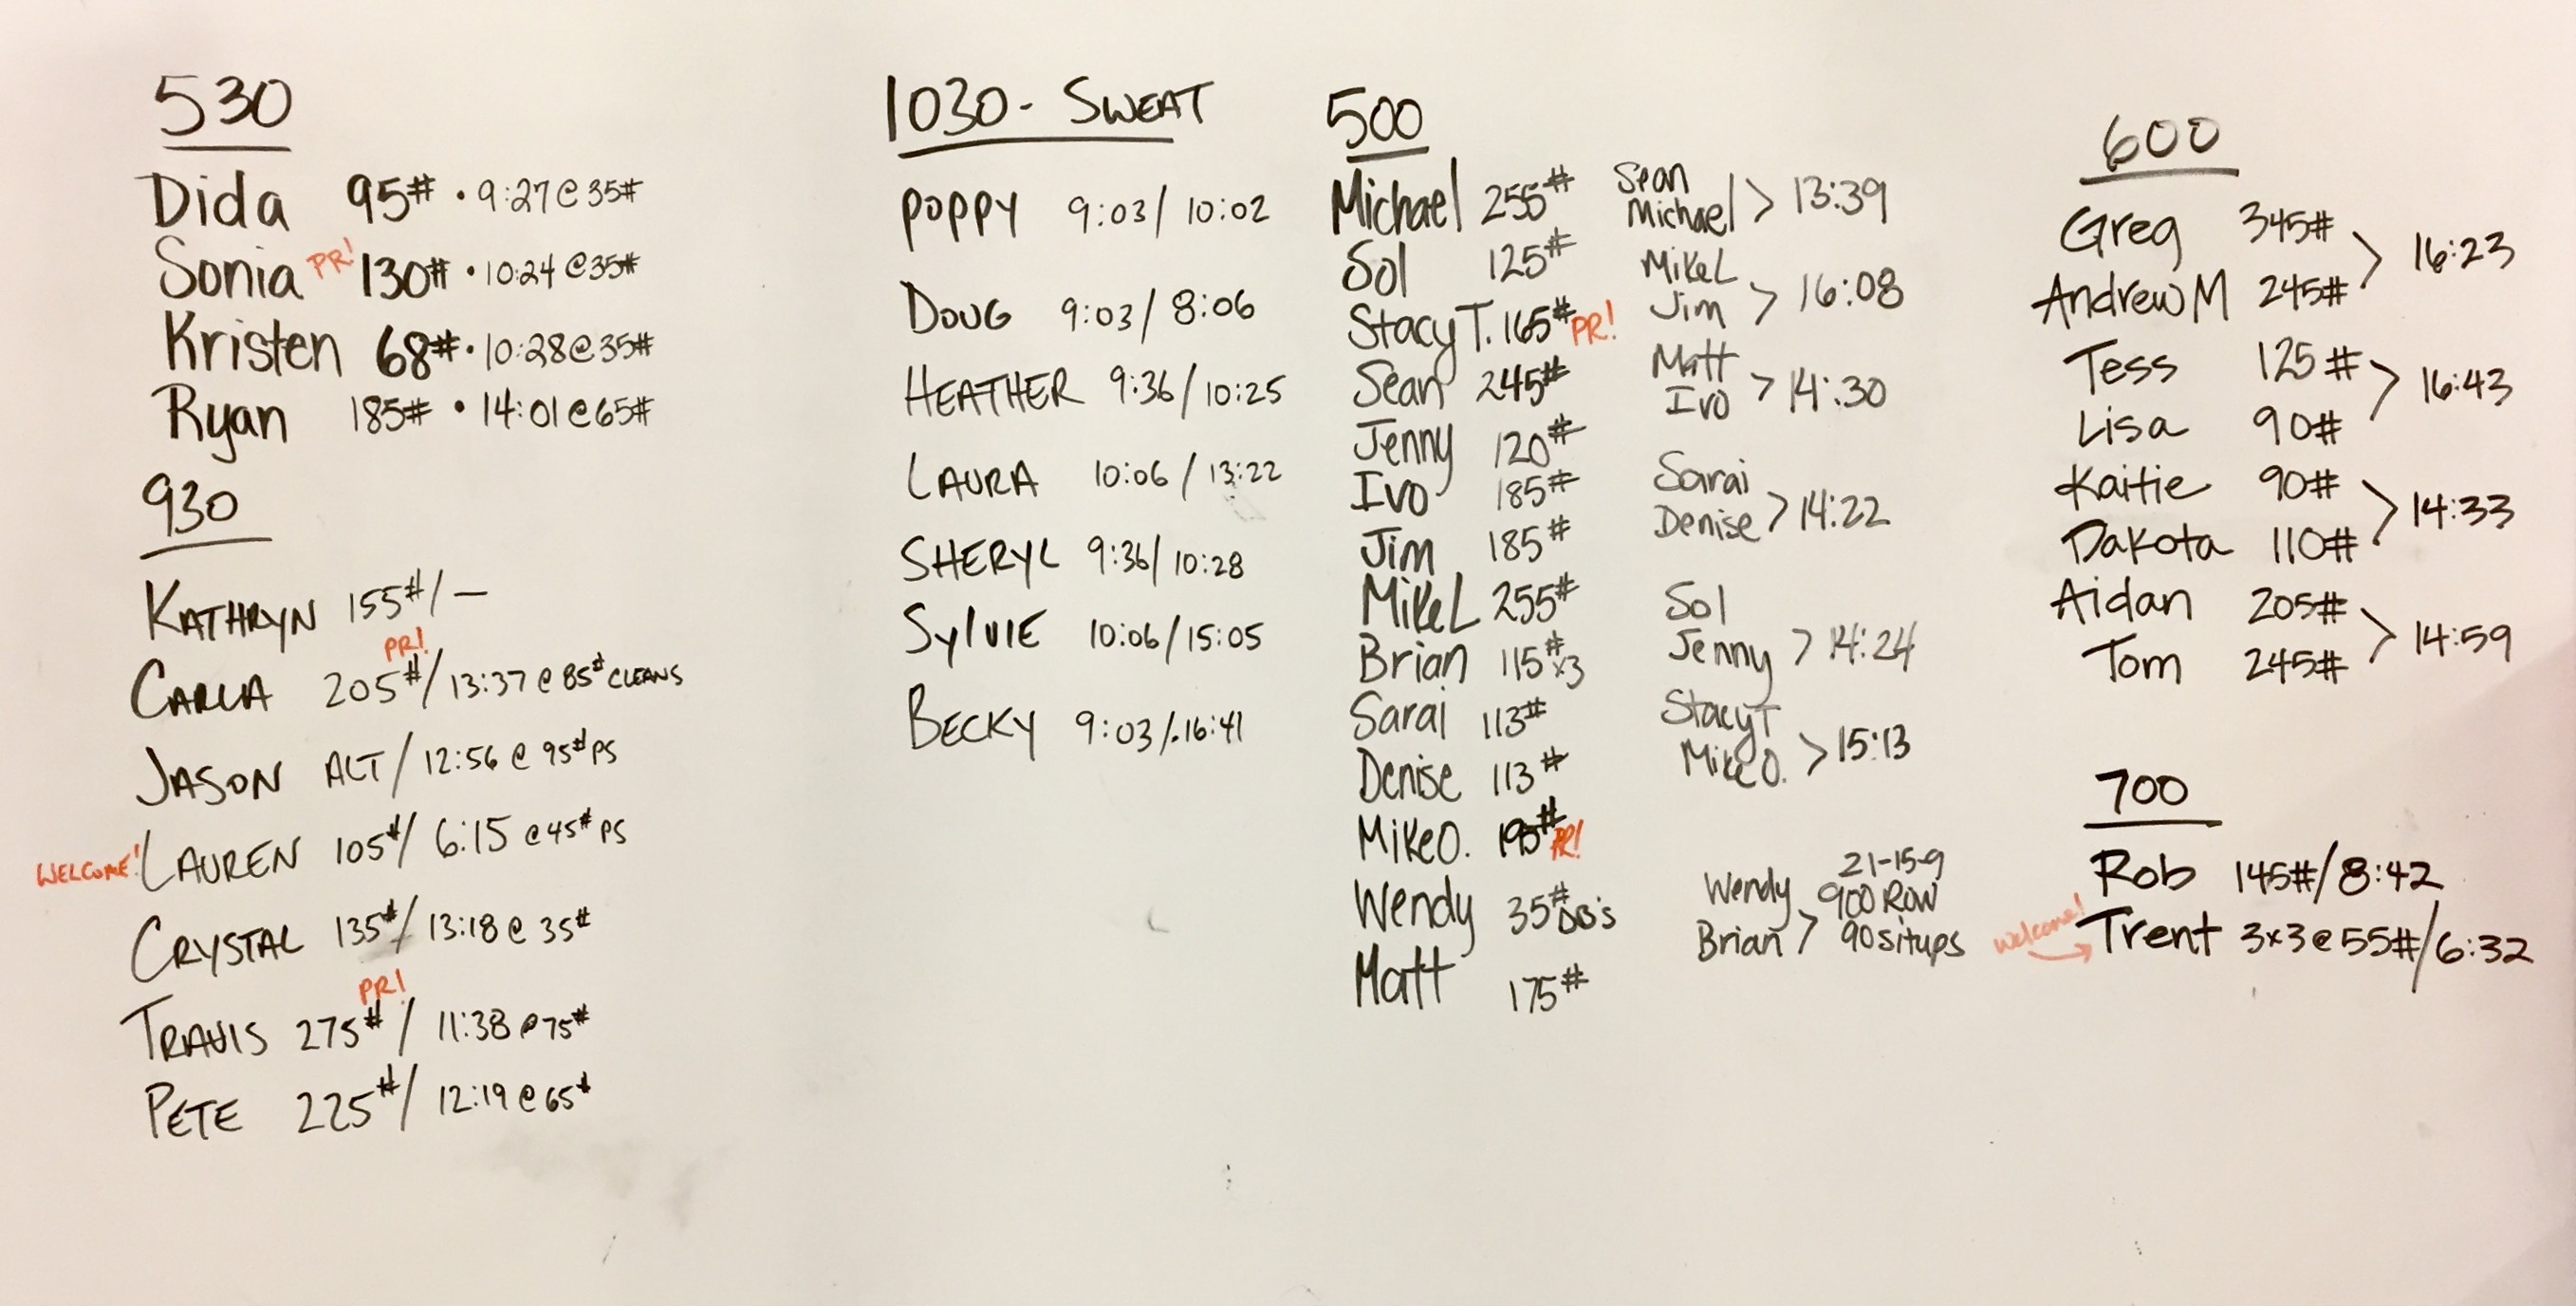 530
Dida 95# • 9:27@35#
Sonia PR! 130# • 10:24@35#
Kristen 68# • 10:28@35#
Ryan 185# • 14:01@65#
930
KATHRYN 155#/—
PR!
CARLA 205#/13:37@85# CLEANS
JASON ALT/12:56@95# PS
WELCOME! LAUREN 105#/6:15@45# PS
CRYSTAL 135#/13:18@35#
PR!
TRAVIS 275#/11:38@75#
PETE 225#/12:19@65#
1030- SWEAT
POPPY 9:03/10:02
DOUG 9:03/8:06
HEATHER 9:36/10:25
LAURA 10:06/13:22
SHERYL 9:36/10:28
SYLVIE 10:06/15:05
BECKY 9:03/16:41
500
Michael 255#
Sol 125#
Stacy T. 165# PR!
Sean 245#
Jenny 120#
Ivo 185#
Jim 185#
Mike L 255#
Brian 115# x3
Sarai 113#
Denise 113#
Mike O. 195# PR!
Wendy 35# DB's
Matt 175#
Sean
Michael > 13:39
Mike L
Jim > 16:08
Matt
Ivo > 14:30
Sarai
Denise > 14:22
Sol
Jenny > 14:24
Stacy T
Mike O. > 15:13
21-15-9
Wendy 900 Row
Brian > 90 situps
600
Greg 345#
Andrew M 245# > 16:23
Tess 125#
Lisa 90# > 16:43
Kaitie 90#
Dakota 110# > 14:33
Aidan 205#
Tom 245# > 14:59
700
Rob 145#/8:42
Welcome! → Trent 3x3@55#/6:32